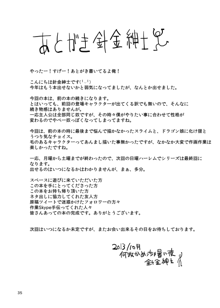 あとがき 針金紳士
やったー！すげー！あとがき書いてるよ俺！
こんにちは針金紳士です(´･`)
今年はもう本出せないかと弱気になってましたが、なんとか出せました。
今回の本は、前の本の続きになります。
とはいっても、前回の登場キャラクターが出てくる訳でも無いので、そんなに
続き物感はありませんが。
一応主人公は全部同じ奴ですが、その時々僕がやりたい事に合わせて性格が
変わるのでやや一匹っぽくなってしまってますね。
今回は、前の本の時に最後まで悩んで描かなかったスライムと、ドラゴン娘に化け損と
いう2つを気なキャスト。
毛のあるキャラクターってあんまし描いた事無かったですが、なかなか大変で作画作業は
とても楽しかったですね。
一応、月曜から土曜まで終わったので、次回の日曜ハーレムでシリーズは最終回に
なります。
出せるのはいつになるかはわかりませんが。まぁ、多分。
スペースに遊びに来ていただいた方
この本を手にとってくださった方
この本をお持ち帰り頂いた方
ネタ出しで協力してくれた友人
原稿ツイートで迷惑かけたフォロワーの方々
作業Skype手伝ってくれた人々
皆さんあっての本の完成です。ありがとうございます。
次回はいつになるか未定ですが、またお会い出来るその日をお待ちしております。
2013/10
針金紳士